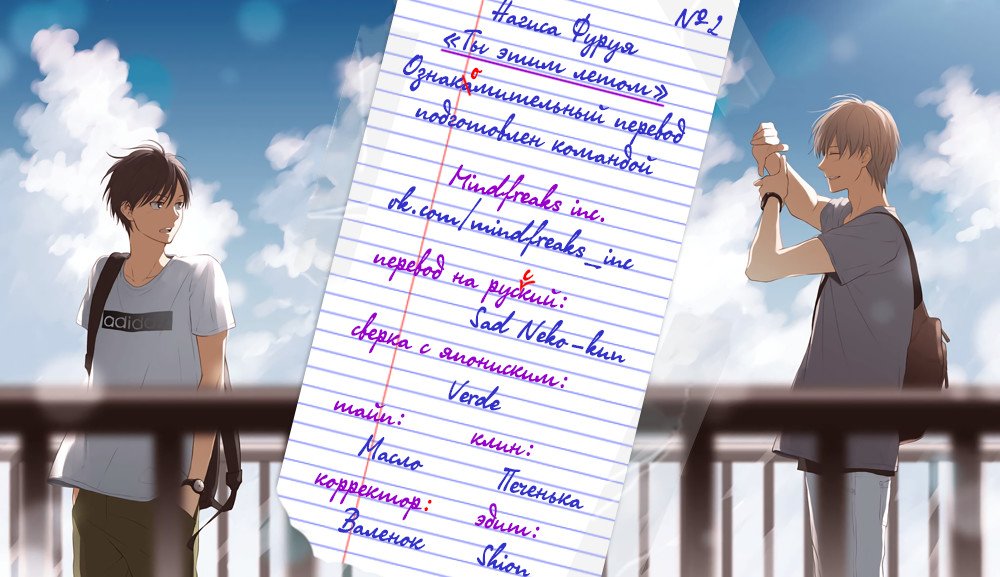 №2
Нагиса Фуруя
«Ты этим летом»
о
Ознакамительный перевод
подготовлен командой
Mindfreaks inc.
vk.com/mindfreaks_inc
с
перевод на руский:
Sad Neko-kun
сверка с япониским:
Verde
тайп: клин:
Масло Печенька
корректор: эдит:
Валенок Shion